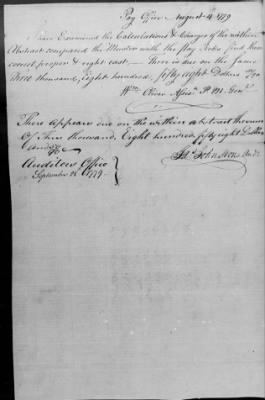 Pay Office August 4 1779
I have Examined the Calculations & Charges of the within
Abstract compared the Muster with the Pay Rolls find them
correct proper & right cast — There is due on the same
three thousand, Eight hundred, fifty eight Dollars
Wm Oliver Assist P. M. Genl
There appears due on the within abstract the sum
of Three thousand, Eight hundred fifty eight Dollars
And
Auditors Office
September 28 1779
Johnston Audr